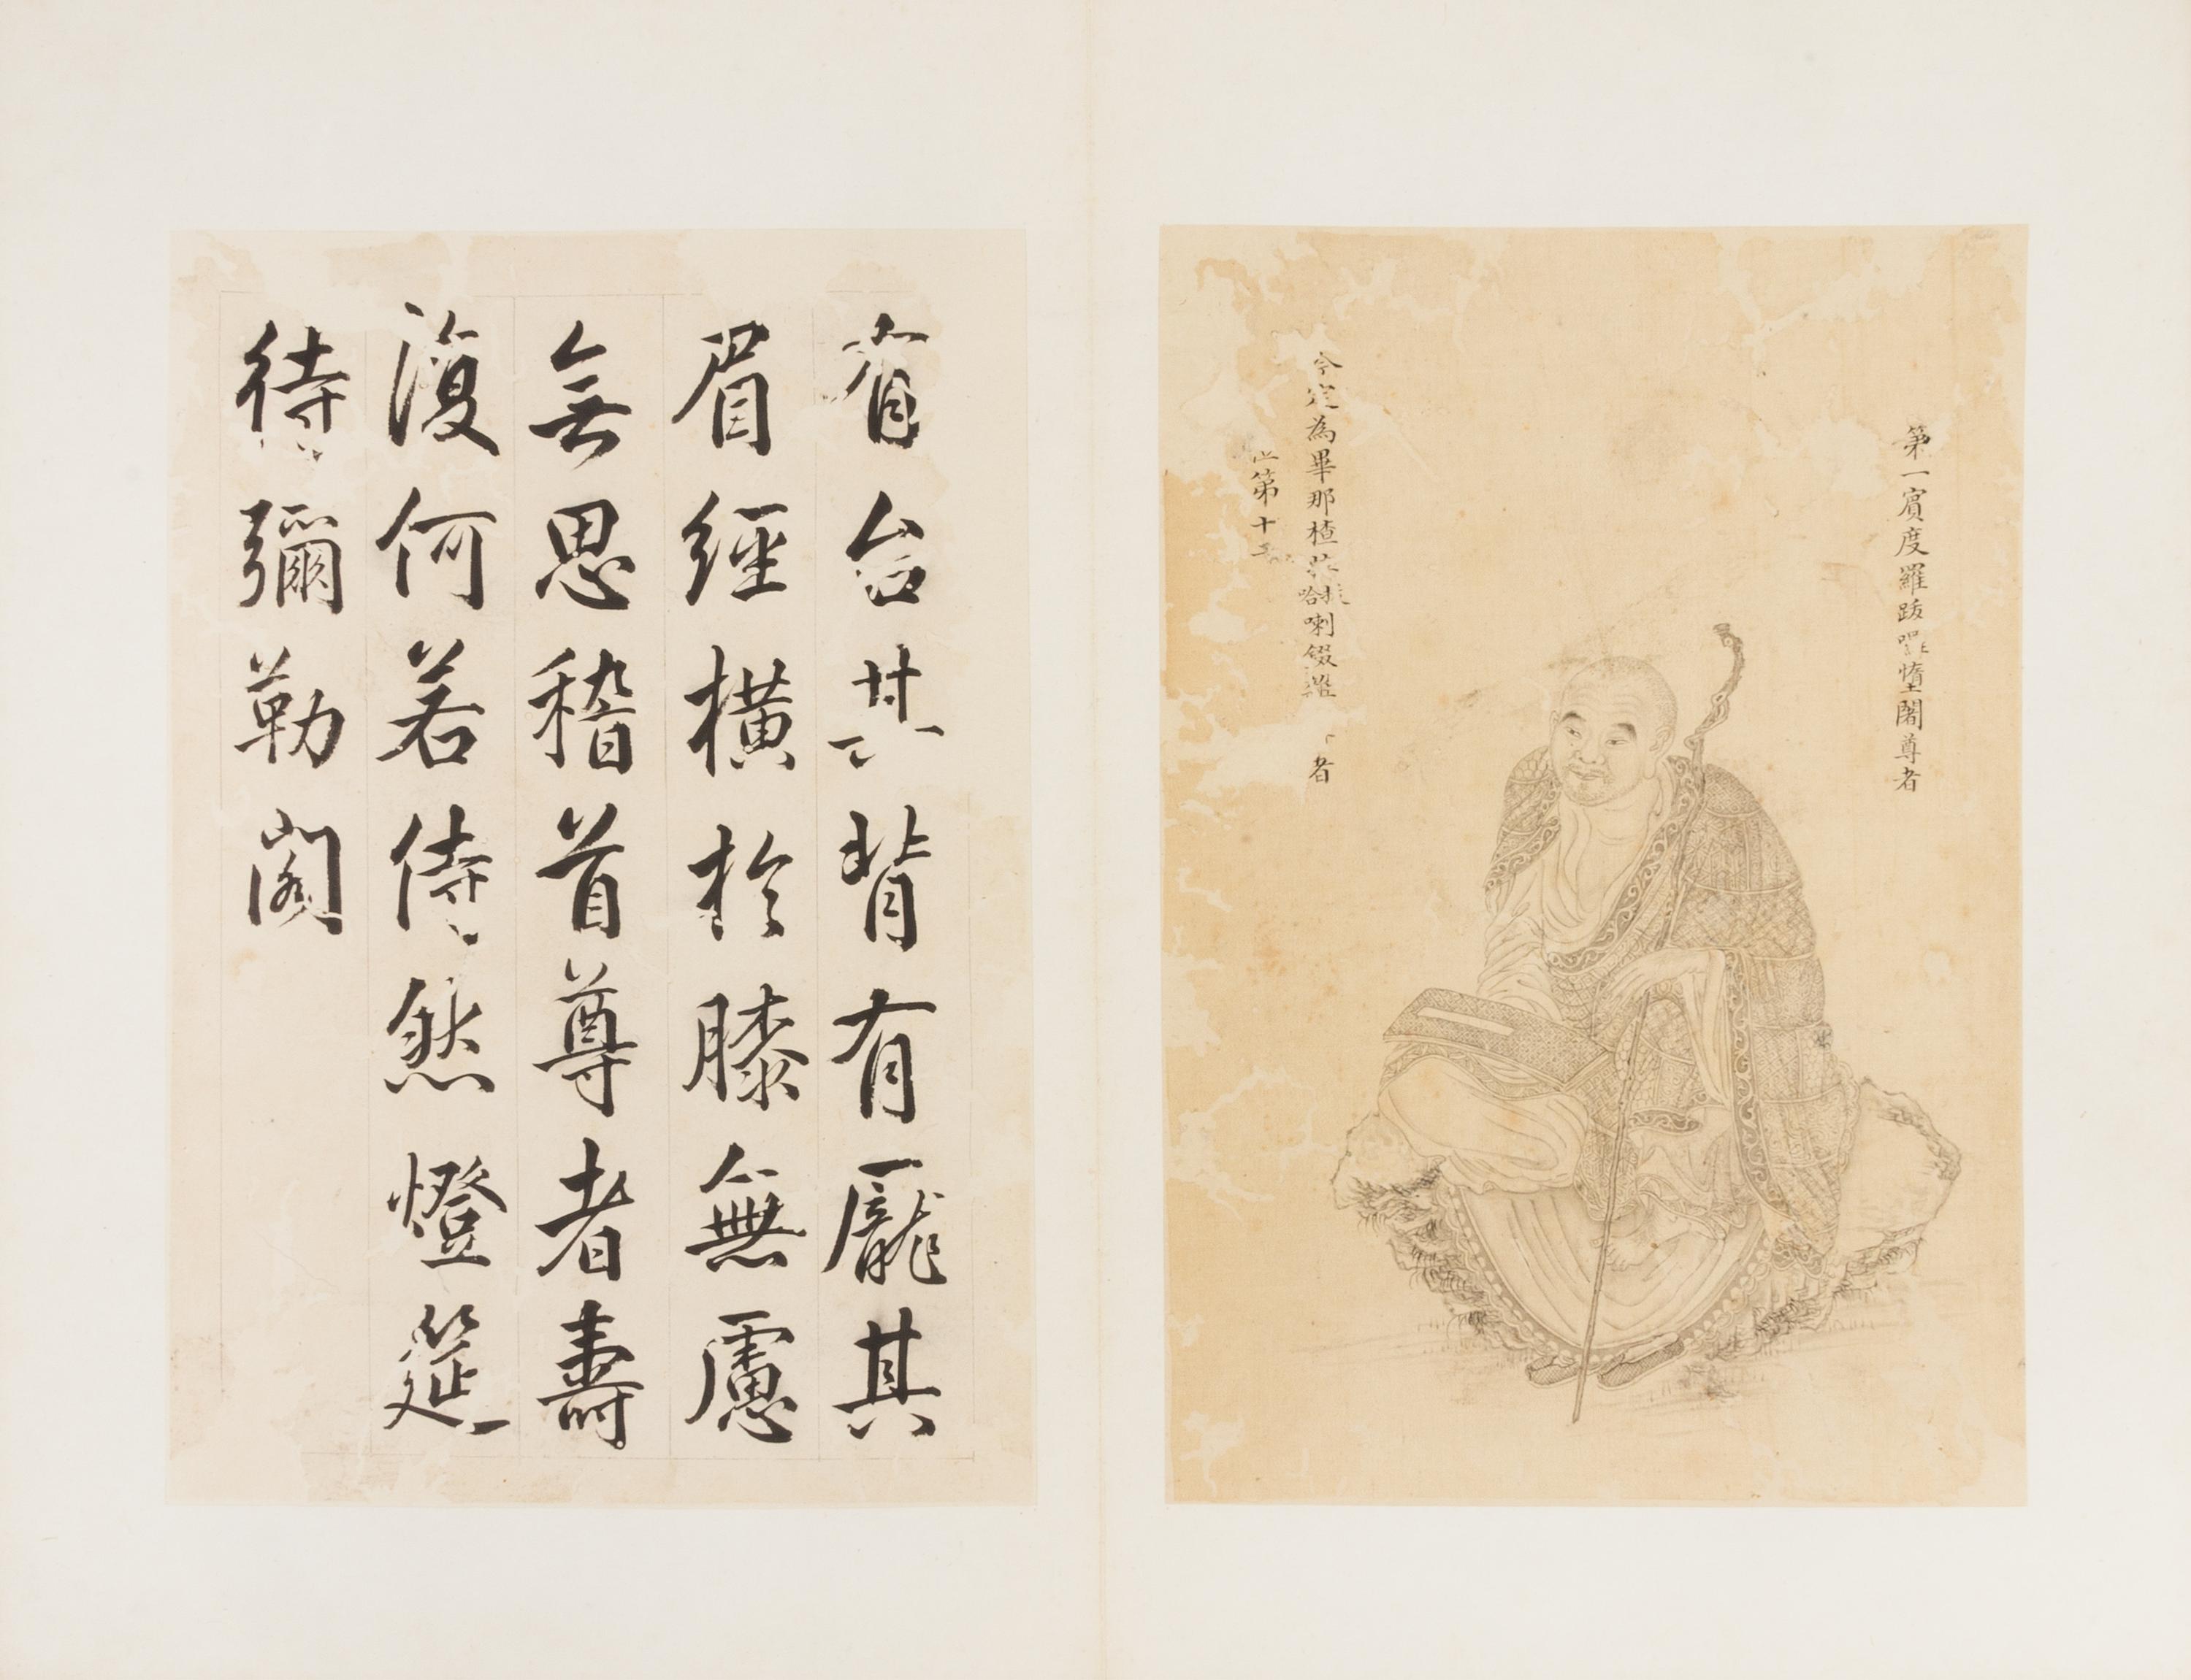 第一賓度羅跋囉墮闍尊者
今定為畢那楂哈喇錣者
第十
台其背有龎其
眉經橫於膝無慮
無思稽首尊者壽
復何若侍然燈筵
待彌勒閣